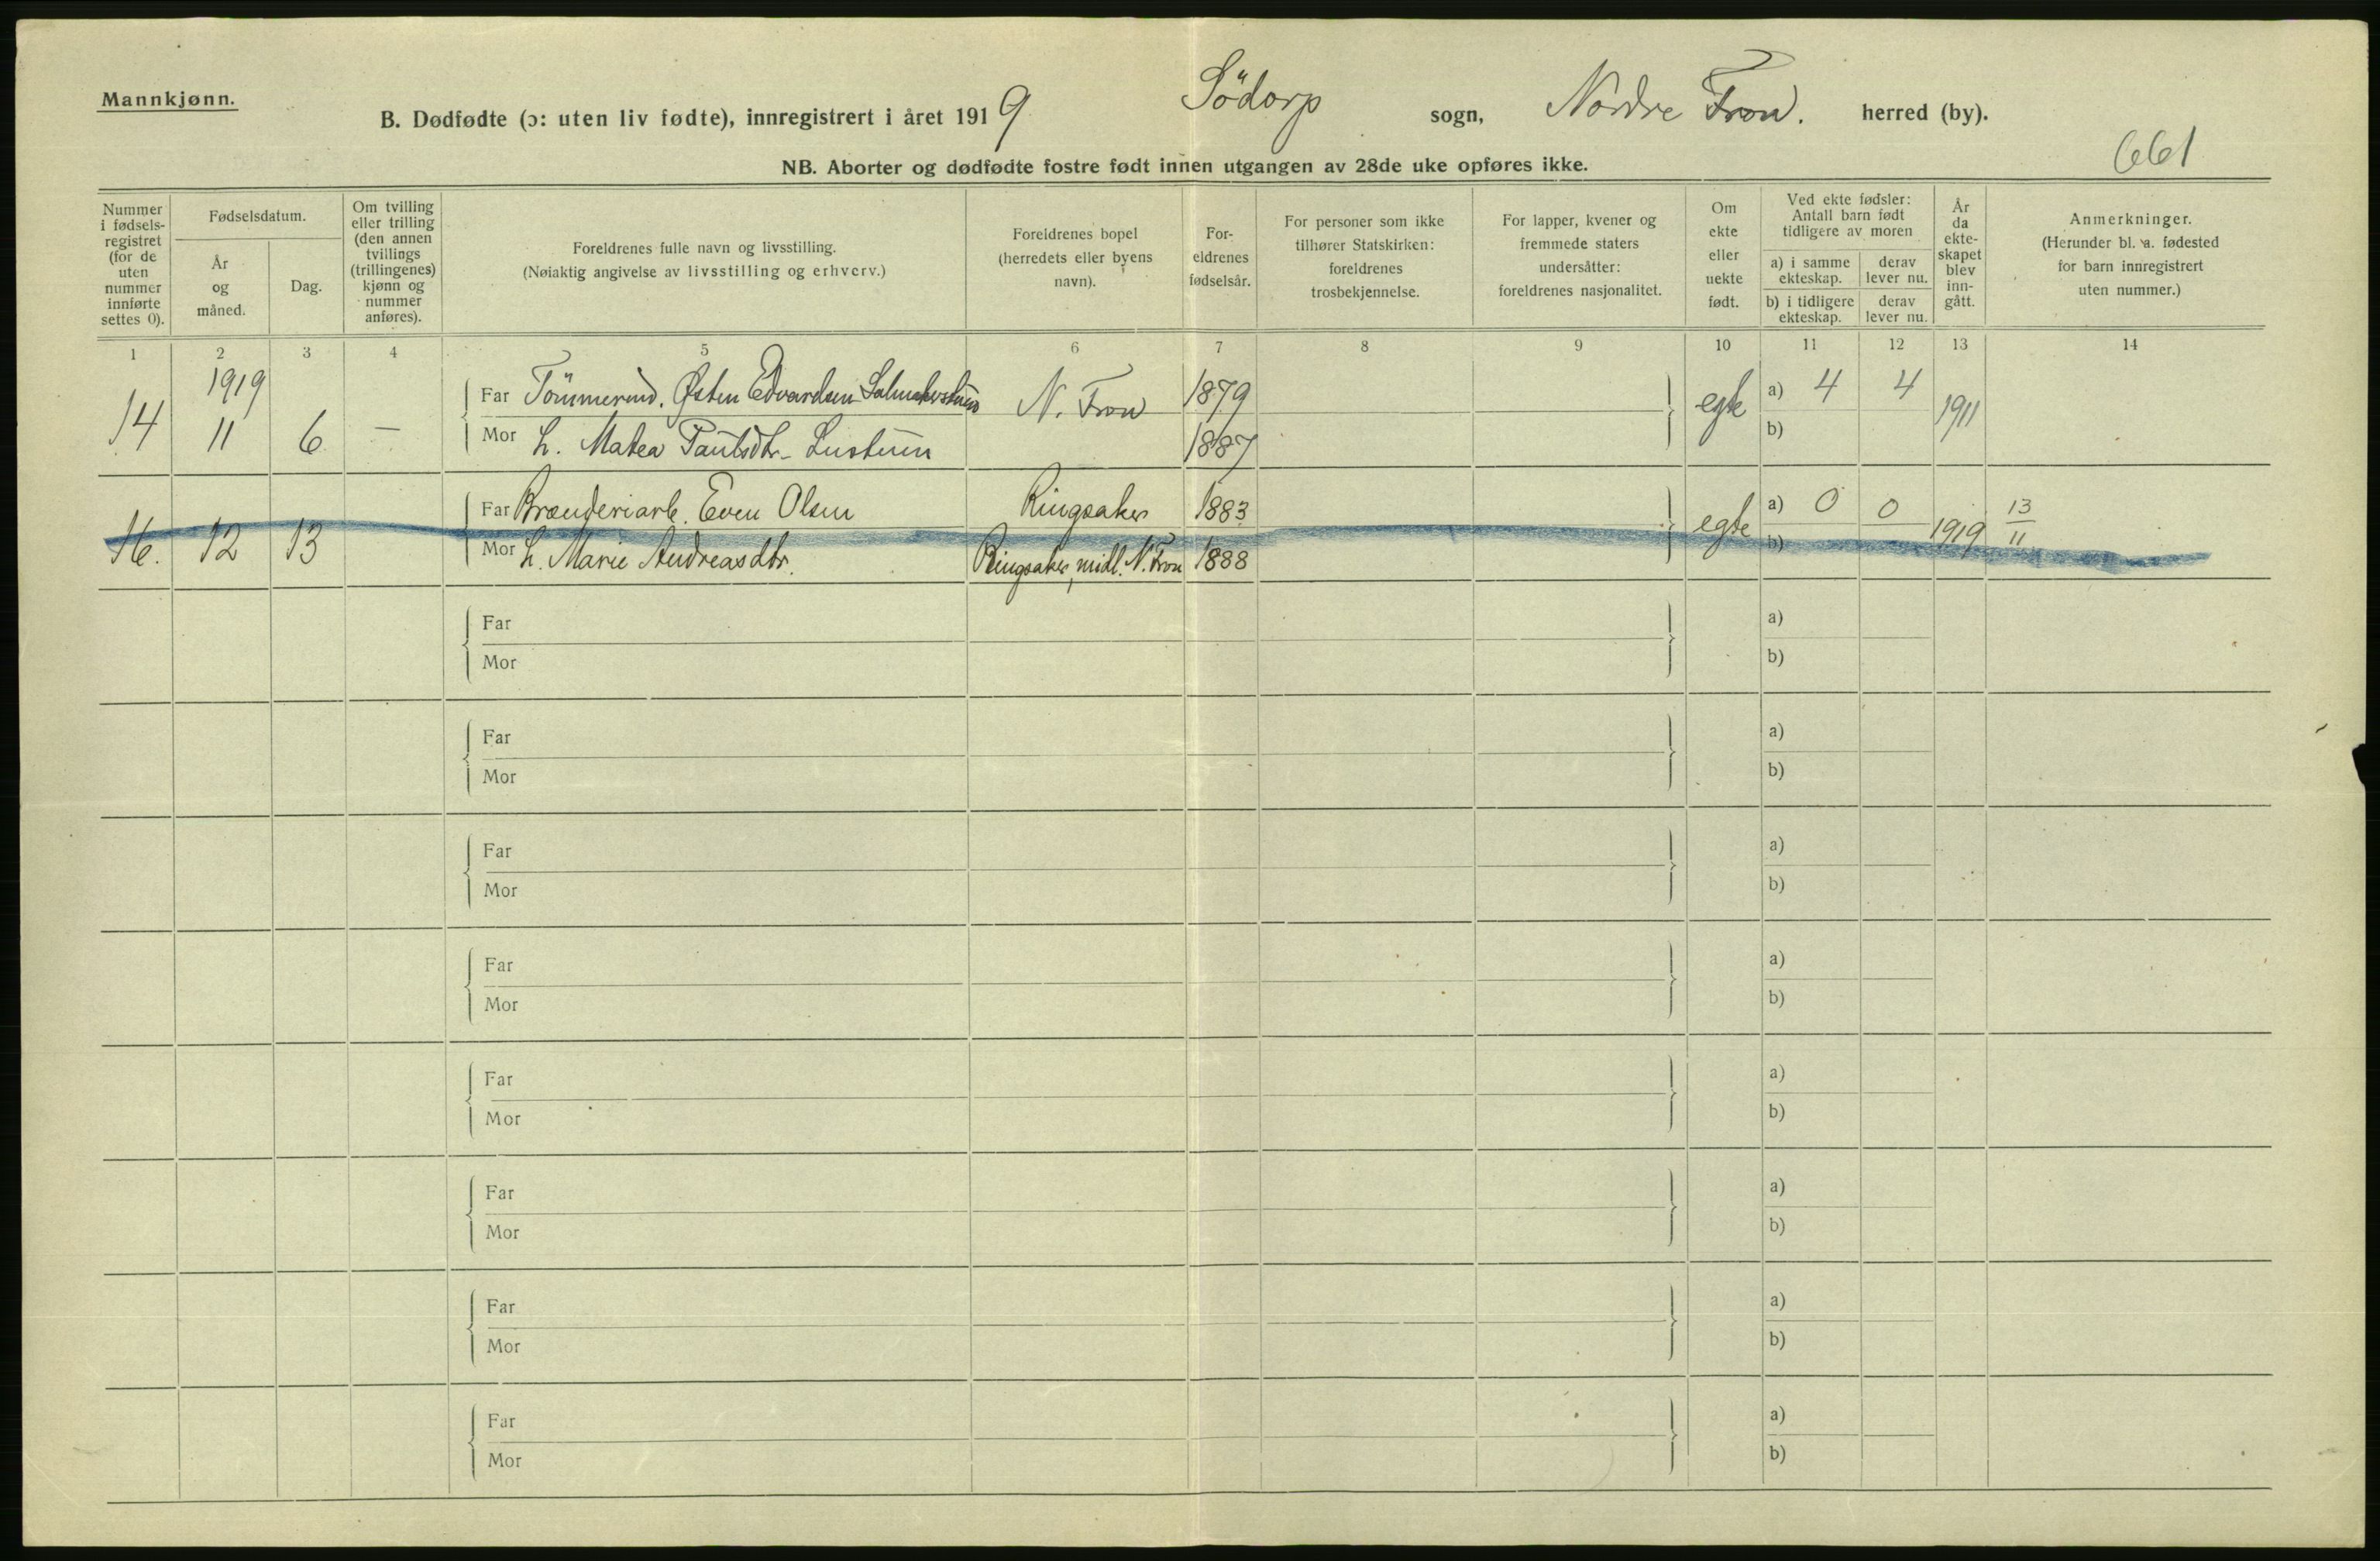 Mannkjønn.
B. Dødfødte (ɔ: uten liv fødte), innregistrert i året 1919 Södorp sogn, Nordre Fron. herred (by).
661
NB. Aborter og dødfødte fostre født innen utgangen av 28de uke opføres ikke.
Nummer i fødsels-registret (for de uten nummer innførte settes 0).
Fødselsdatum.
År og måned.
Dag.
Om tvilling eller trilling (den annen tvillings (trillingenes) kjønn og nummer anføres).
Foreldrenes fulle navn og livsstilling.
(Nøiaktig angivelse av livsstilling og erhverv.)
Foreldrenes bopel (herredets eller byens navn).
For-eldrenes fødselsår.
For personer som ikke tilhører Statskirken: foreldrenes trosbekjennelse.
For lapper, kvener og fremmede staters undersåtter: foreldrenes nasjonalitet.
Om ekte eller uekte født.
Ved ekte fødsler: Antall barn født tidligere av moren
a) i samme ekteskap.
derav lever nu.
b) i tidligere ekteskap.
derav lever nu.
År da ekte-skapet blev inn-gått.
Anmerkninger.
(Herunder bl. a. fødested for barn innregistrert uten nummer.)
1 2 3 4 5 6 7 8 9 10 11 12 13 14
1919
14 11 6 —
Far Tömmermd. Østen Edvardsen N. Fron 1879 egte a) 4 4 1911
Mor h. Matea Paulsdtr. 1887 b)
16. 12 13
Far Brænderiarb. Even Olsen Ringsaker 1883 egte a) 0 0 1919 13/11
Mor h. Marie Andreasdtr. Ringsaker, midl. N. Fron 1888 b)
Far a)
Mor b)
Far a)
Mor b)
Far a)
Mor b)
Far a)
Mor b)
Far a)
Mor b)
Far a)
Mor b)
Far a)
Mor b)
Far a)
Mor b)